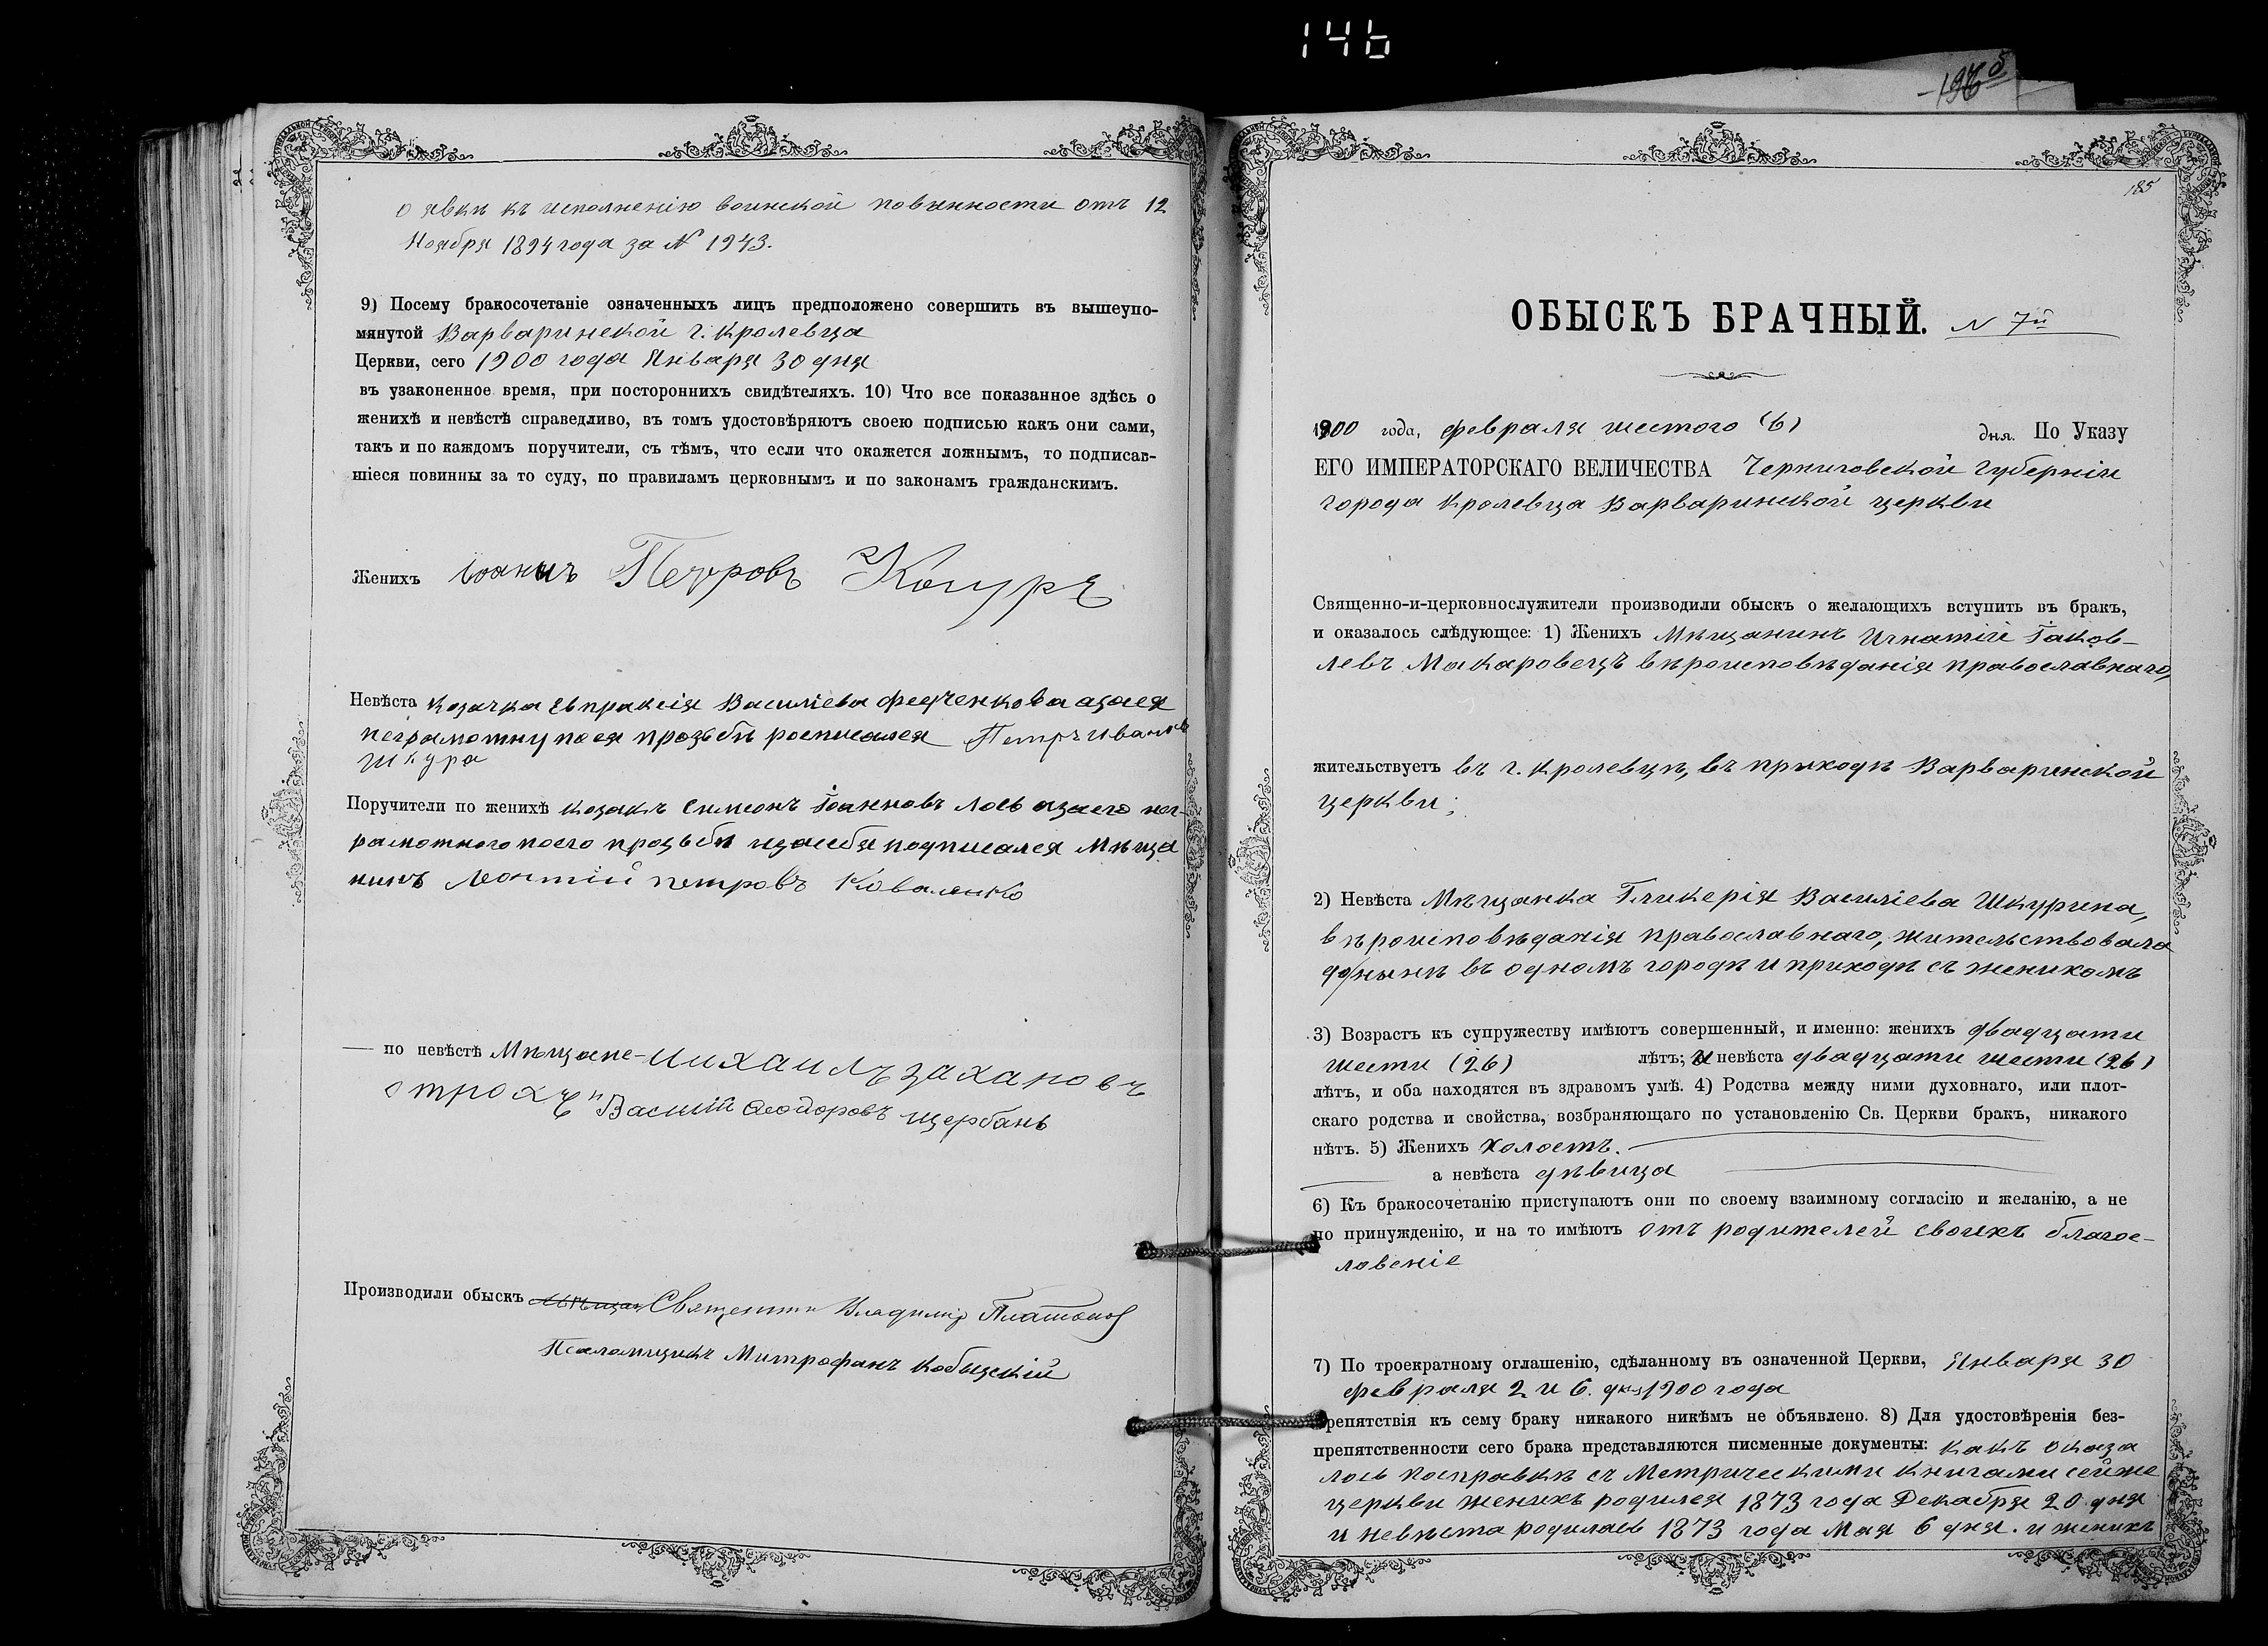 146
185
о явкѣ къ исполненію воинской повинности отъ 12
Ноября 1894 года за № 1943.
9) Посему бракосочетаніе означенныхъ лицъ предположено совершить въ вышеупо-
мянутой Варваринской г. Кролевца
Церкви, сего 1900 года Января 30 дня
въ узаконенное время, при постороннихъ свидѣтеляхъ. 10) Что все показанное здѣсь о
женихѣ и невѣстѣ справедливо, въ томъ удостовѣряютъ своею подписью какъ они сами,
такъ и по каждомъ поручители, съ тѣмъ, что если что окажется ложнымъ, то подписав-
шіеся повинны за то суду, по правиламъ церковнымъ и по законамъ гражданскимъ.
Женихъ Іоаннъ Петровъ
Невѣста козачка Евпраксія Василіева Федченкова а за ея
неграмотну по ея прозьбѣ росписался Петръ Ивановъ
Шкура
Поручители по женихѣ козакъ Симеонъ Іоанновъ Лось а за его нег-
рамотного по его прозьбѣ и за себя подписался Мѣща
нинъ Леонтій Петровъ Коваленко
— по невѣстѣ Мѣщане - Михаилъ
отрохъ и Василій Ѳеодоровъ Щербань
Производили обыскъ Священникъ Владимір Платонов
Псаломщикъ Митрофанъ Кобыщскій
ОБЫСКЪ БРАЧНЫЙ. N 7й
1900 года, февраля шестого (6) дня. По Указу
ЕГО ИМПЕРАТОРСКАГО ВЕЛИЧЕСТВА Черниговской Губерніи
города Кролевца Варваринской церкви
Священно-и-церковнослужители производили обыскъ о желающихъ вступить въ бракъ,
и оказалось слѣдующее: 1) Женихъ Мѣщанинъ Игнатій Іаков-
левъ Макаровецъ вѣроисповѣданія православнаго,
жительствуетъ въ г. Кролевцѣ, въ приходѣ Варваринской
церкви;
2) Невѣста Мѣщанка Гликерія Василіева Шкурина,
вѣроисповѣданія православнаго, жительствовала
до нынѣ въ одномъ городѣ и приходѣ съ женихомъ
3) Возрастъ къ супружеству имѣютъ совершенный, и именно: женихъ двадцати
шести (26) лѣтъ; и невѣста двадцати шести (26)
лѣтъ, и оба находятся въ здравомъ умѣ. 4) Родства между ними духовнаго, или плот-
скаго родства и свойства, возбраняющаго по установленію Св. Церкви бракъ, никакого
нѣтъ. 5) Женихъ холостъ.
а невѣста дѣвица
6) Къ бракосочетанію приступаютъ они по своему взаимному согласію и желанію, а не
по принужденію, и на то имѣютъ отъ родителей своихъ благос-
ловеніе
7) По троекратному оглашенію, сдѣланному въ означенной Церкви, Января 30
февраля 2 и 6. дня 1900 года
препятствія къ сему браку никакого никѣмъ не объявлено. 8) Для удостовѣренія без-
препятственности сего брака представляются писменные документы: какъ оказа
лось посправкѣ съ Метрическими книгами сей же
церкви женихъ родился 1873 года Декабря 20 дня
и невѣста родилась 1873 года Мая 6 дня. и женихъ